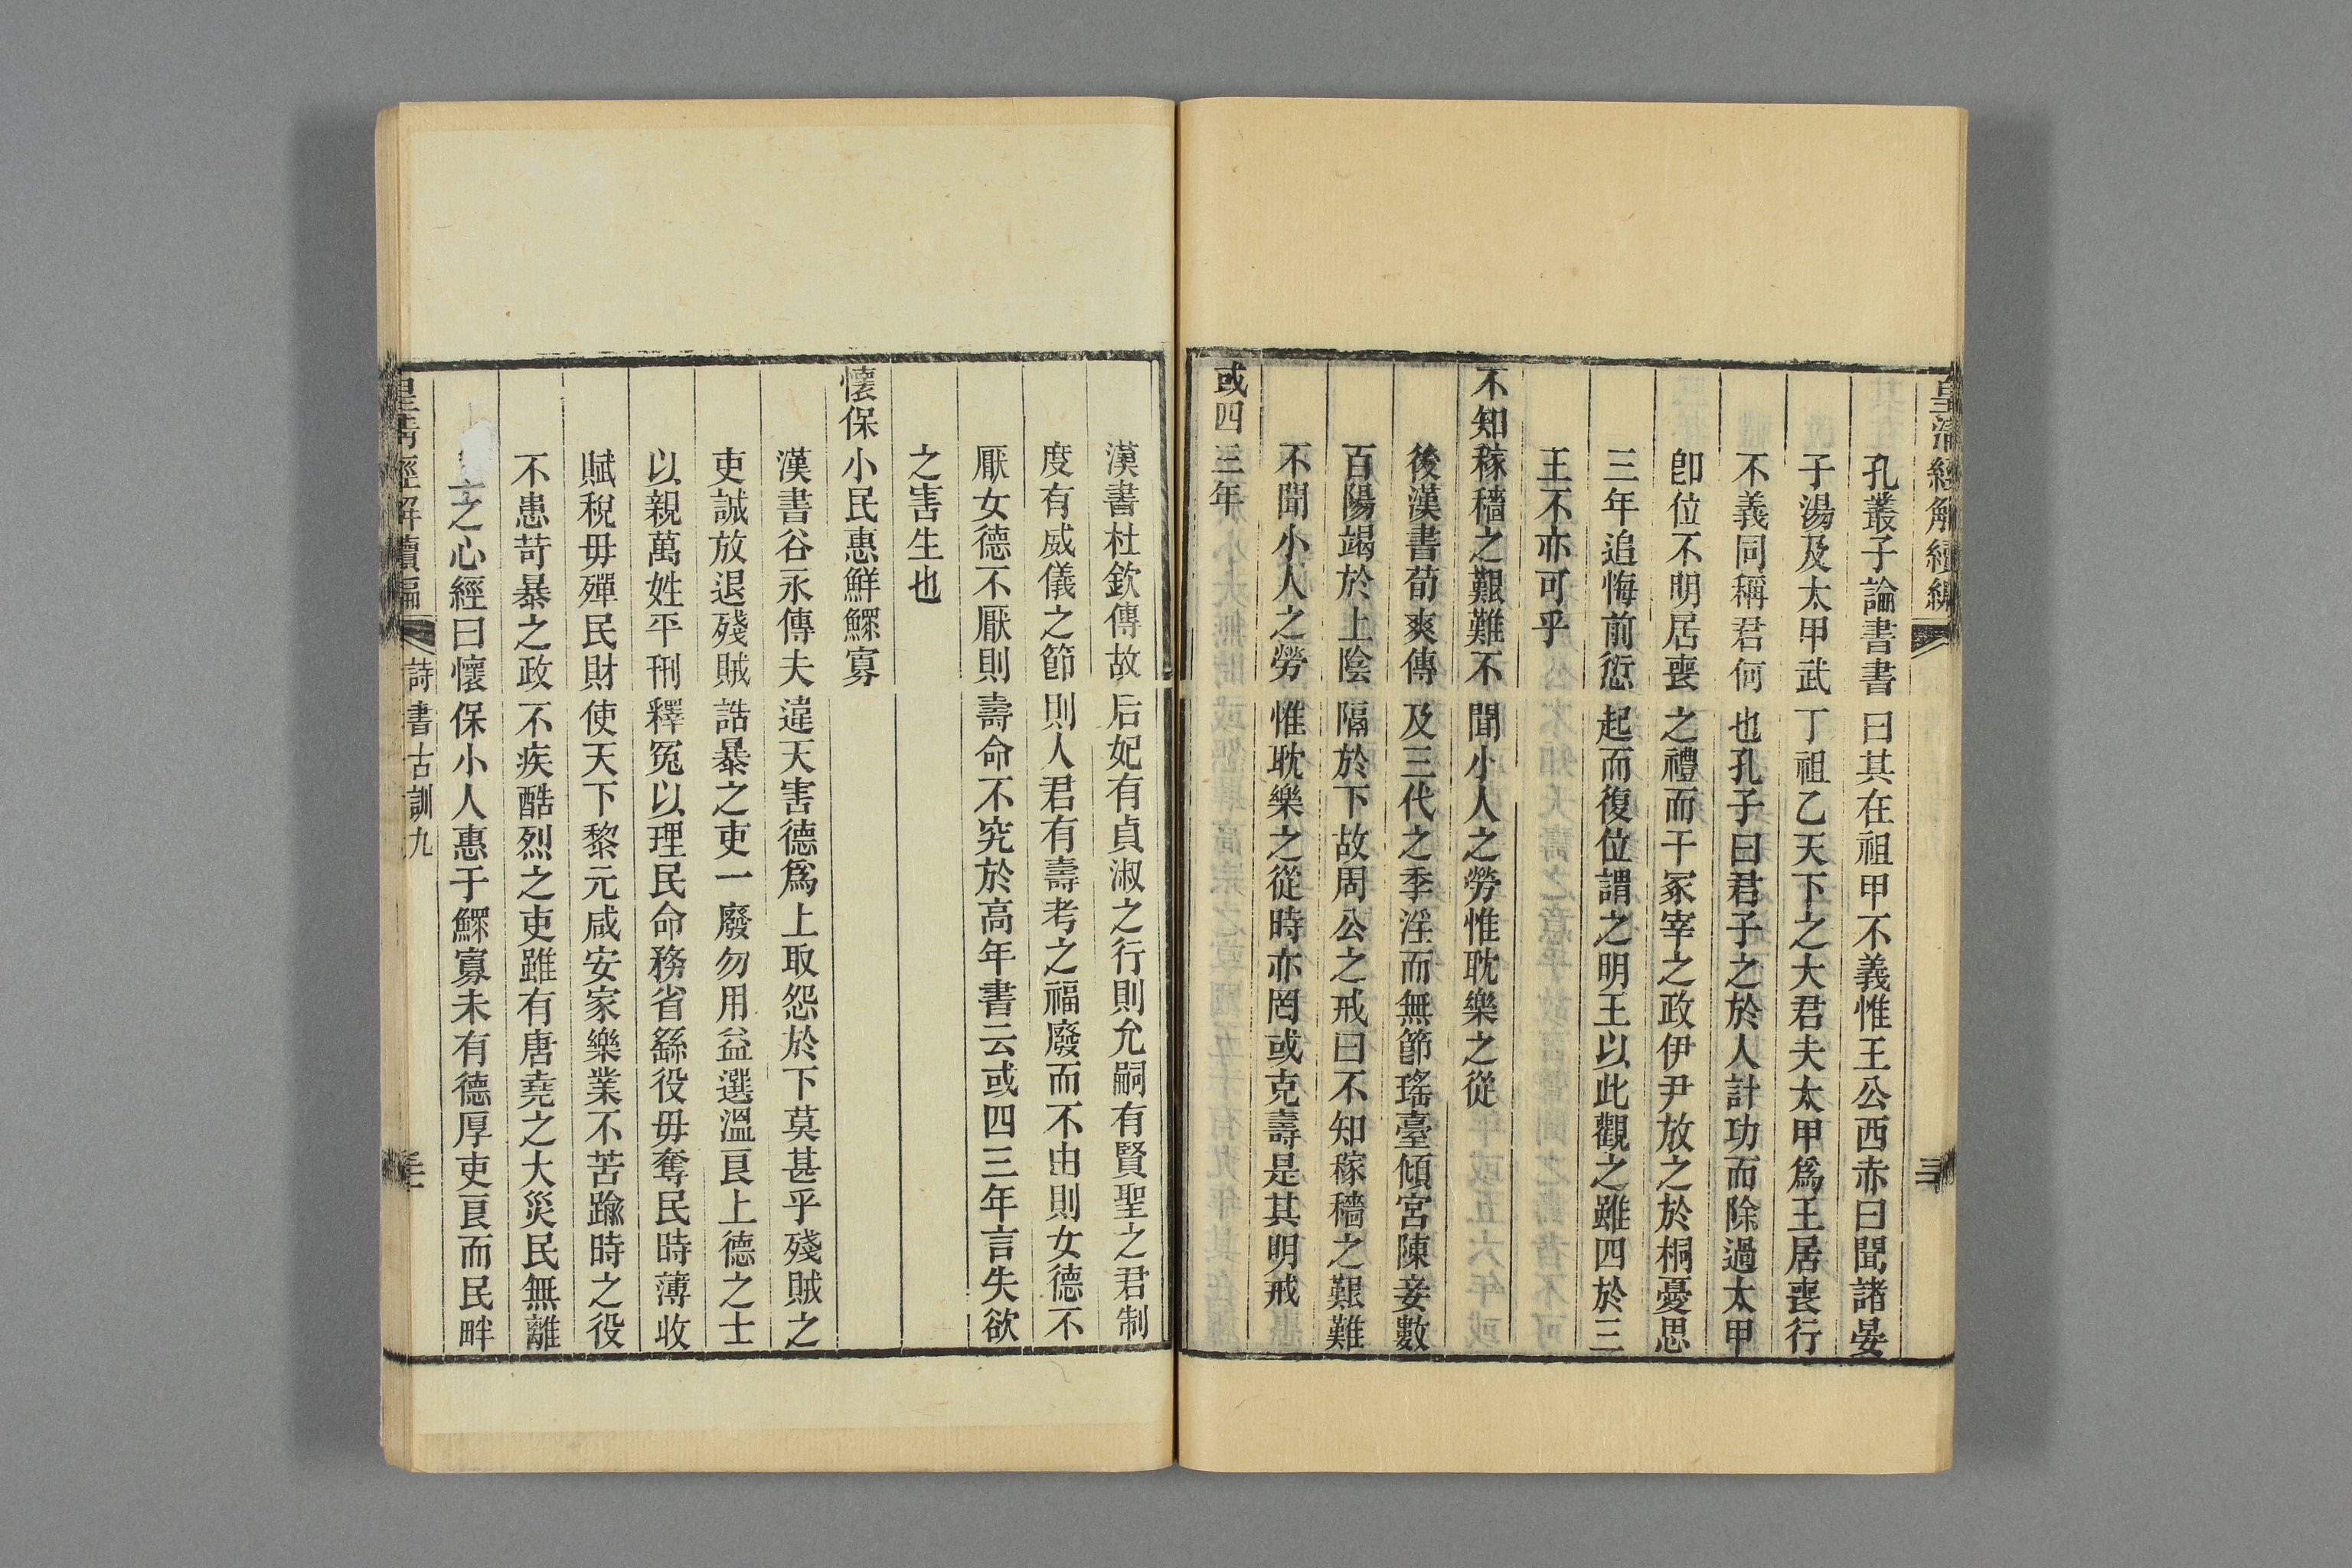 皇清經解續編
三
孔叢子論書書曰其在祖甲不義惟王公西赤曰聞諸晏
子湯及太甲武丁祖乙天下之大君夫太甲爲王居喪行
不義同稱君何也孔子曰君子之於人計功而除過太甲
卽位不明居喪之禮而干冢宰之政伊尹放之於桐憂思
三年追悔前愆起而復位謂之明王以此觀之雖四於三
王不亦可乎
不知稼穡之艱難不聞小人之勞惟耽樂之從
後漢書荀爽傳及三代之季淫而無節瑤臺傾宮陳妾數
百陽竭於上陰隔於下故周公之戒曰不知稼穡之艱難
不聞小人之勞惟耽樂之從時亦罔或克壽是其明戒
或四三年
漢書杜欽傳故后妃有貞淑之行則允嗣有賢聖之君制
度有威儀之節則人君有壽考之福廢而不由則女德不
厭女德不厭則壽命不究於高年書云或四三年言失欲
之害生也
懷保小民惠鮮鰥寡
漢書谷永傳夫違天害德爲上取怨於下莫甚乎殘賊之
吏誠放退殘賊誥暴之吏一廢勿用益選溫良上德之士
以親萬姓平刑釋冤以理民命務省繇役毋奪民時薄收
賦稅毋殫民財使天下黎元咸安家樂業不苦踰時之役
不患苛暴之政不疾酷烈之吏雖有唐堯之大災民無離
之心經曰懷保小人惠于鰥寡未有德厚吏良而民畔
皇清經解續編
詩書古訓九